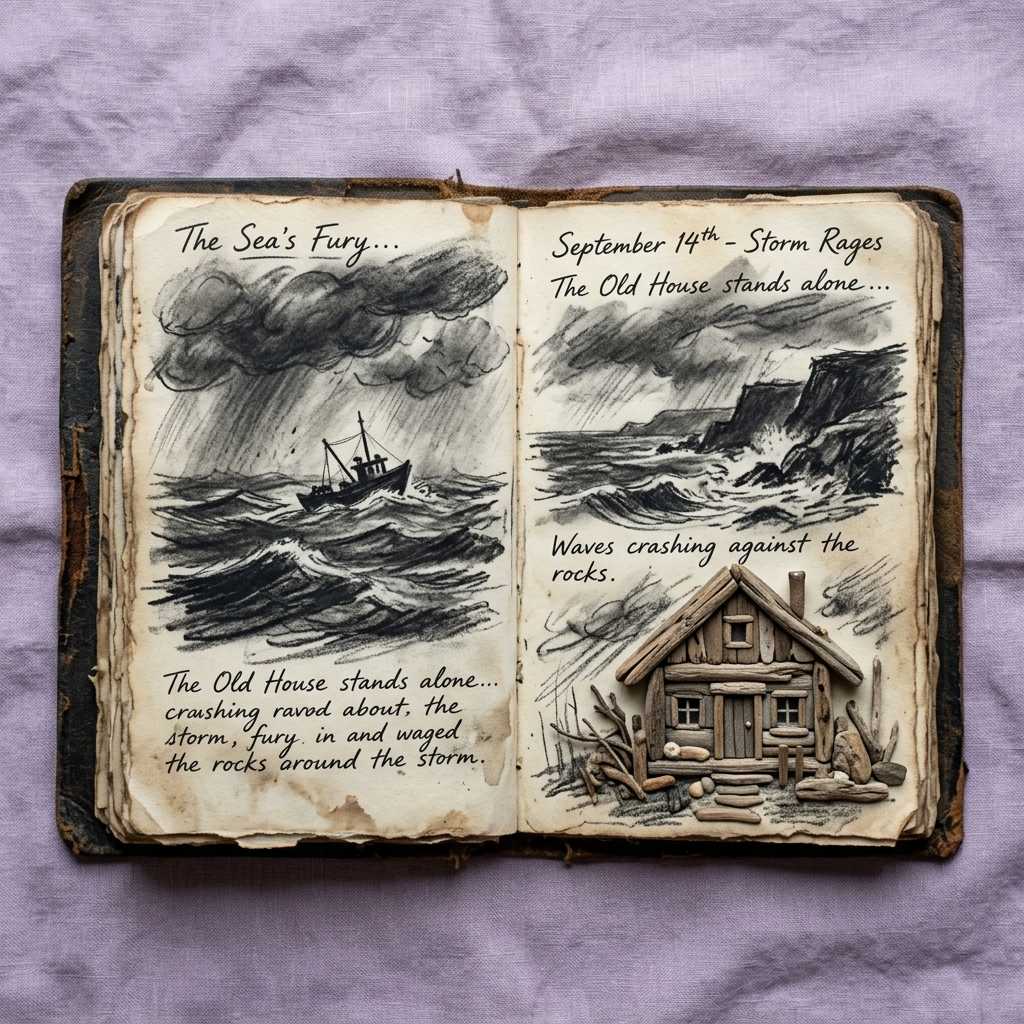 The Sea's Fury...
The Old House stands alone...
crashing ravod about, the
storm, fury. in and waged
the rocks around the storm.
September 14th - Storm Rages
The Old House stands alone...
Waves crashing against the
rocks.